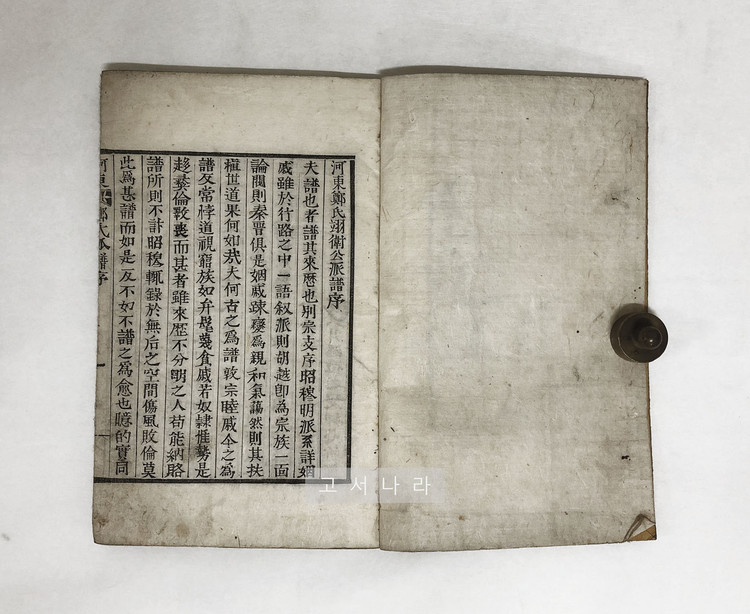 河東鄭氏翊衛公派譜序
夫譜也者譜其來歴也別宗支序昭穆明派系詳姻
戚雖於行路之中一語叙派則胡越卽為宗族一面
論閥則秦晋俱是姻戚踈變爲親和氣藹然則其扶
植世道果何如㢤夫何古之爲譜敦宗睦戚今之爲
譜反常悖道視窮族如弁髦蔑貧戚若奴隷惟勢是
趍彜倫斁喪而甚者雖來歷不分明之人苟能納賂
譜所則不計昭穆輒錄於無后之空間傷風敗倫莫
此爲甚譜而如是反不如不譜之爲愈也噫的實同
河東鄭氏派譜序
고서나라